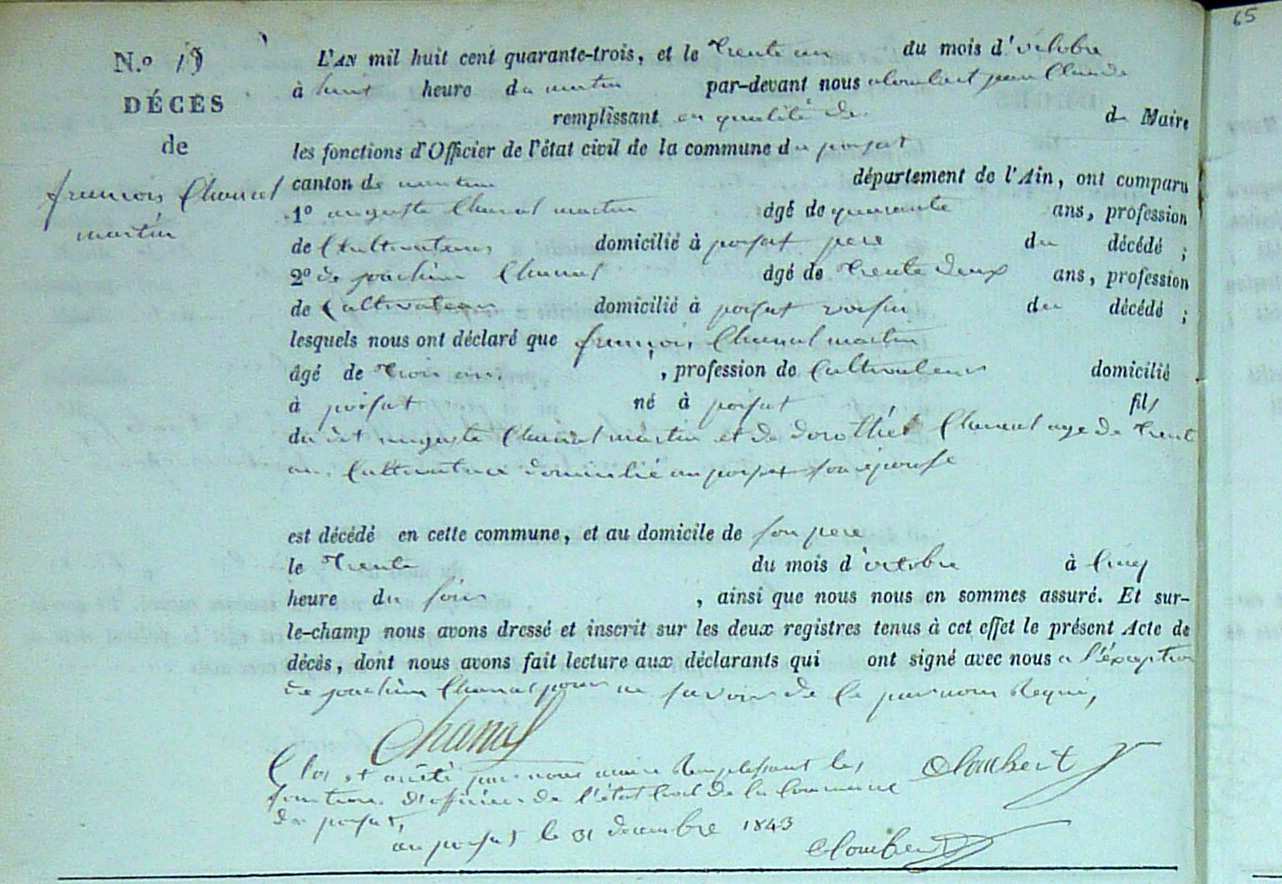 65
N.º 19
DÉCÈS
de
françois Chanal
martin
L'AN mil huit cent quarante-trois, et le trente un du mois d'octobre
à huit heure du matin par-devant nous alombert jean Claude
remplissant en qualité de de Maire
les fonctions d'Officier de l'état civil de la commune du poisat
canton de nantua département de l'Ain, ont comparu
1º auguste Chanal martin âgé de quarante ans, profession
de Cultivateur domicilié à poisat pere du décédé ;
2º de joachim Chanal âgé de trente deux ans, profession
de Cultivateur domicilié à poisat voisin du décédé ;
lesquels nous ont déclaré que françois Chanal martin
âgé de trois ans. , profession de Cultivateur domicilié
à poisat né à poisat fils
du dit auguste Chanal martin et de dorothée Chanal age de trent
an Cultivatrice domicilié au poisat son épouse
est décédé en cette commune, et au domicile de son pere
le trente du mois d'octobre à Cinq
heure du soir , ainsi que nous nous en sommes assuré. Et sur-
le-champ nous avons dressé et inscrit sur les deux registres tenus à cet effet le présent Acte de
décès, dont nous avons fait lecture aux déclarants qui ont signé avec nous a l'éxception
de joachim Chanal pour ne savoir de ce par nous Requi,
Chanal
Clos et arrêté par nous maire Remplissant les
alombert
fonctions d'officier de l'état Civil de la Commune
du poisat,
au poisat le 31 decembre 1843
alombert